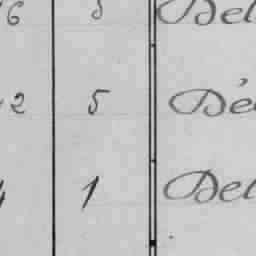 6 5 Del
2 5 Dé
1 Del